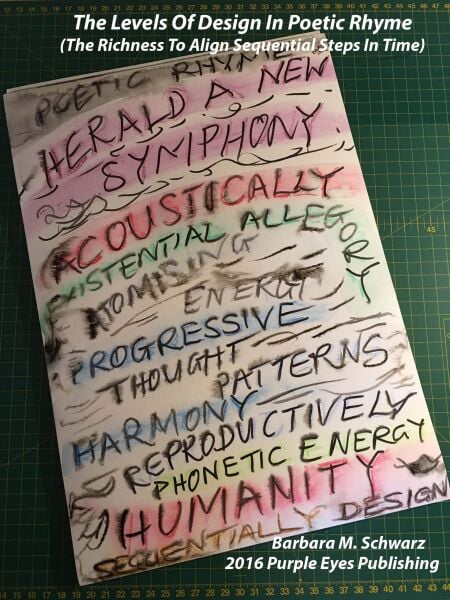 The Levels Of Design In Poetic Rhyme
(The Richness To Align Sequential Steps In Time)
POETIC RHYME
HERALD A NEW
SYMPHONY
ACOUSTICALLY
EXISTENTIAL ALLEGORY
ATOMISING
ENERGY
PROGRESSIVE
THOUGHT
PATTERNS
HARMONY
REPRODUCTIVELY
PHONETIC ENERGY
HUMANITY
SEQUENTIALLY DESIGN
Barbara M. Schwarz
2016 Purple Eyes Publishing